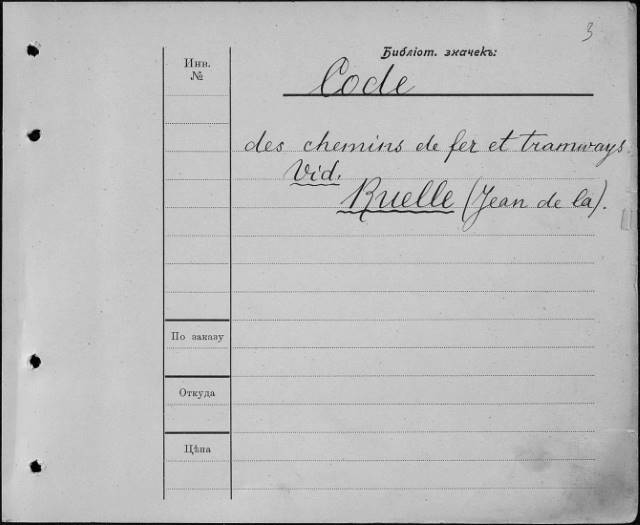 3
Библіот. значекъ:
Инв.
№
Code
des chemins de fer et tramways.
Vid.
Ruelle (Jean de la).
По заказу
Откуда
Цѣна